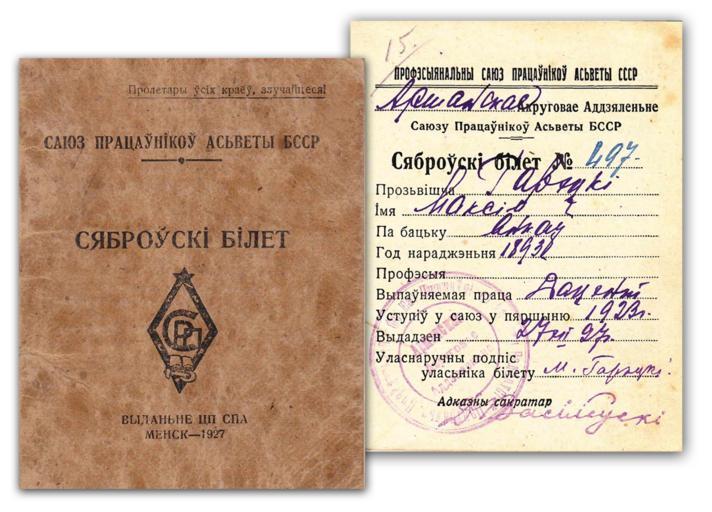 Пролетары ўсіх краёў, злучайцеся!
САЮЗ ПРАЦАЎНІКОЎ АСЬВЕТЫ БССР
СЯБРОЎСКІ БІЛЕТ
ВЫДАНЬНЕ ЦП СПА
МЕНСК—1927
15.
ПРОФЭСЫЯНАЛЬНЫ САЮЗ ПРАЦАЎНІКОЎ АСЬВЕТЫ СССР
Аршанскае Акруговае Аддзяленьне
Саюзу Працаўнікоў Асьветы БССР
Сяброўскі білет № 497
Прозьвішча Гарэцкі
Імя Максім
Па бацьку
Год нараджэньня 1893
Профэсыя
Выпаўняемая праца Дацэнт
Уступіў у саюз у пяршыню 1923 г.
Выдадзен 27 XII 27 г.
Уласнаручны подпіс
уласьніка білету М. Гарэцкі
Адказны сакратар